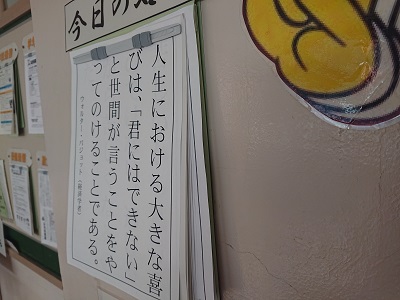 今日の
人生における大きな喜
びは、「君にはできない」
と世間が言うことをや
ってのけることである。
ウォルター・バジョット(経済学者)